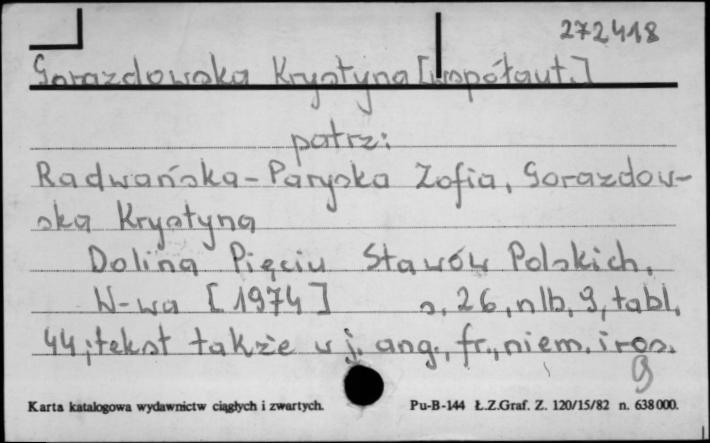 272418
Gorazdowska Krystyna [współaut.]
patrz:
Radwańska-Paryska Zofia, Gorazdow-
ska Krystyna
Dolina Pięciu Stawów Polskich.
W-wa [1974] s. 26, nlb, 9, tabl.
44; tekst także w j. ang., fr., niem. i ros.
9
Karta katalogowa wydawnictw ciągłych i zwartych. Pu-B-144 Ł.Z.Graf. Z. 120/15/82 n. 638000.